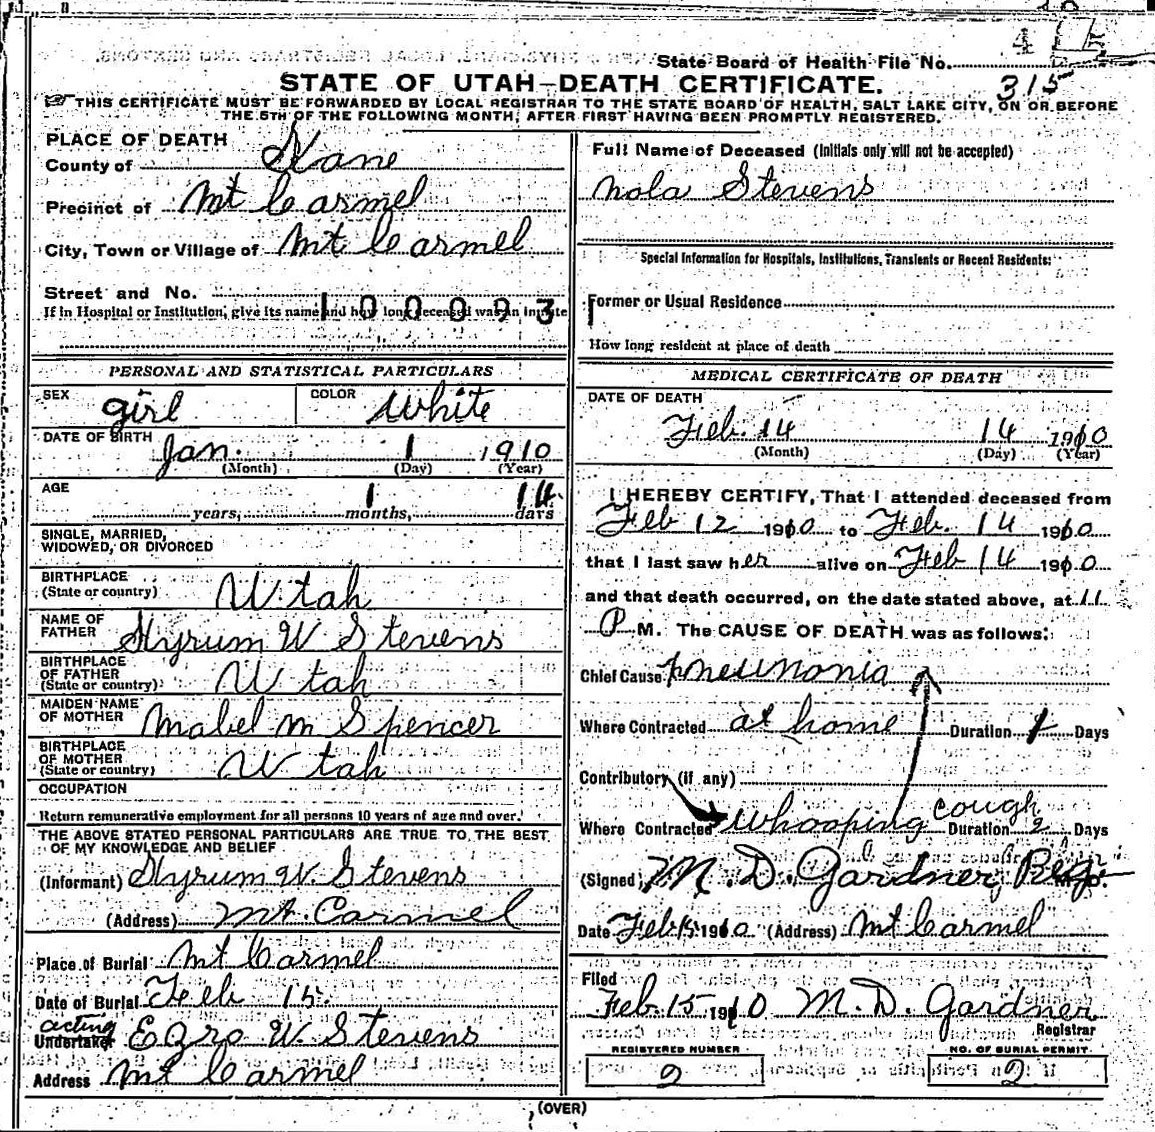 State Board of Health File No.
315
STATE OF UTAH—DEATH CERTIFICATE.
THIS CERTIFICATE MUST BE FORWARDED BY LOCAL REGISTRAR TO THE STATE BOARD OF HEALTH, SALT LAKE CITY, ON OR BEFORE
THE 5TH OF THE FOLLOWING MONTH, AFTER FIRST HAVING BEEN PROMPTLY REGISTERED.
PLACE OF DEATH
County of Kane
Precinct of Mt Carmel
City, Town or Village of Mt. Carmel
Street and No.
If in Hospital or Institution, give its name and how long deceased was an inmate
1000093
PERSONAL AND STATISTICAL PARTICULARS
SEX girl COLOR White
DATE OF BIRTH Jan. 1 1910
(Month) (Day) (Year)
AGE 1 14
years, months, days
SINGLE, MARRIED,
WIDOWED, OR DIVORCED
BIRTHPLACE
(State or country) Utah
NAME OF
FATHER Hyrum W Stevens
BIRTHPLACE
OF FATHER
(State or country) Utah
MAIDEN NAME
OF MOTHER Mabel M Spencer
BIRTHPLACE
OF MOTHER
(State or country) Utah
OCCUPATION
Return remunerative employment for all persons 10 years of age and over.
THE ABOVE STATED PERSONAL PARTICULARS ARE TRUE TO THE BEST
OF MY KNOWLEDGE AND BELIEF
(Informant) Hyrum W. Stevens
(Address) Mt. Carmel
Place of Burial Mt Carmel
Date of Burial Feb 15
acting
Undertaker Ezra W. Stevens
Address Mt Carmel
Full Name of Deceased (Initials only will not be accepted)
Nola Stevens
Special Information for Hospitals, Institutions, Transients or Recent Residents:
Former or Usual Residence
How long resident at place of death
MEDICAL CERTIFICATE OF DEATH
DATE OF DEATH
Feb. 14 14 1910
(Month) (Day) (Year)
I HEREBY CERTIFY, That I attended deceased from
Feb 12 1910 to Feb. 14 1910
that I last saw her alive on Feb 14 1910
and that death occurred, on the date stated above, at 11
P M. The CAUSE OF DEATH was as follows:
Chief Cause pneumonia
Where Contracted at home Duration Days
Contributory (if any)
Where Contracted Whooping cough Duration 2 Days
(Signed) M. D. Gardner, Reg.
Date Feb 15 1910 (Address) Mt Carmel
Filed
Feb. 15 1910 M. D. Gardner
Registrar
REGISTERED NUMBER NO. OF BURIAL PERMIT
2 2
(OVER)